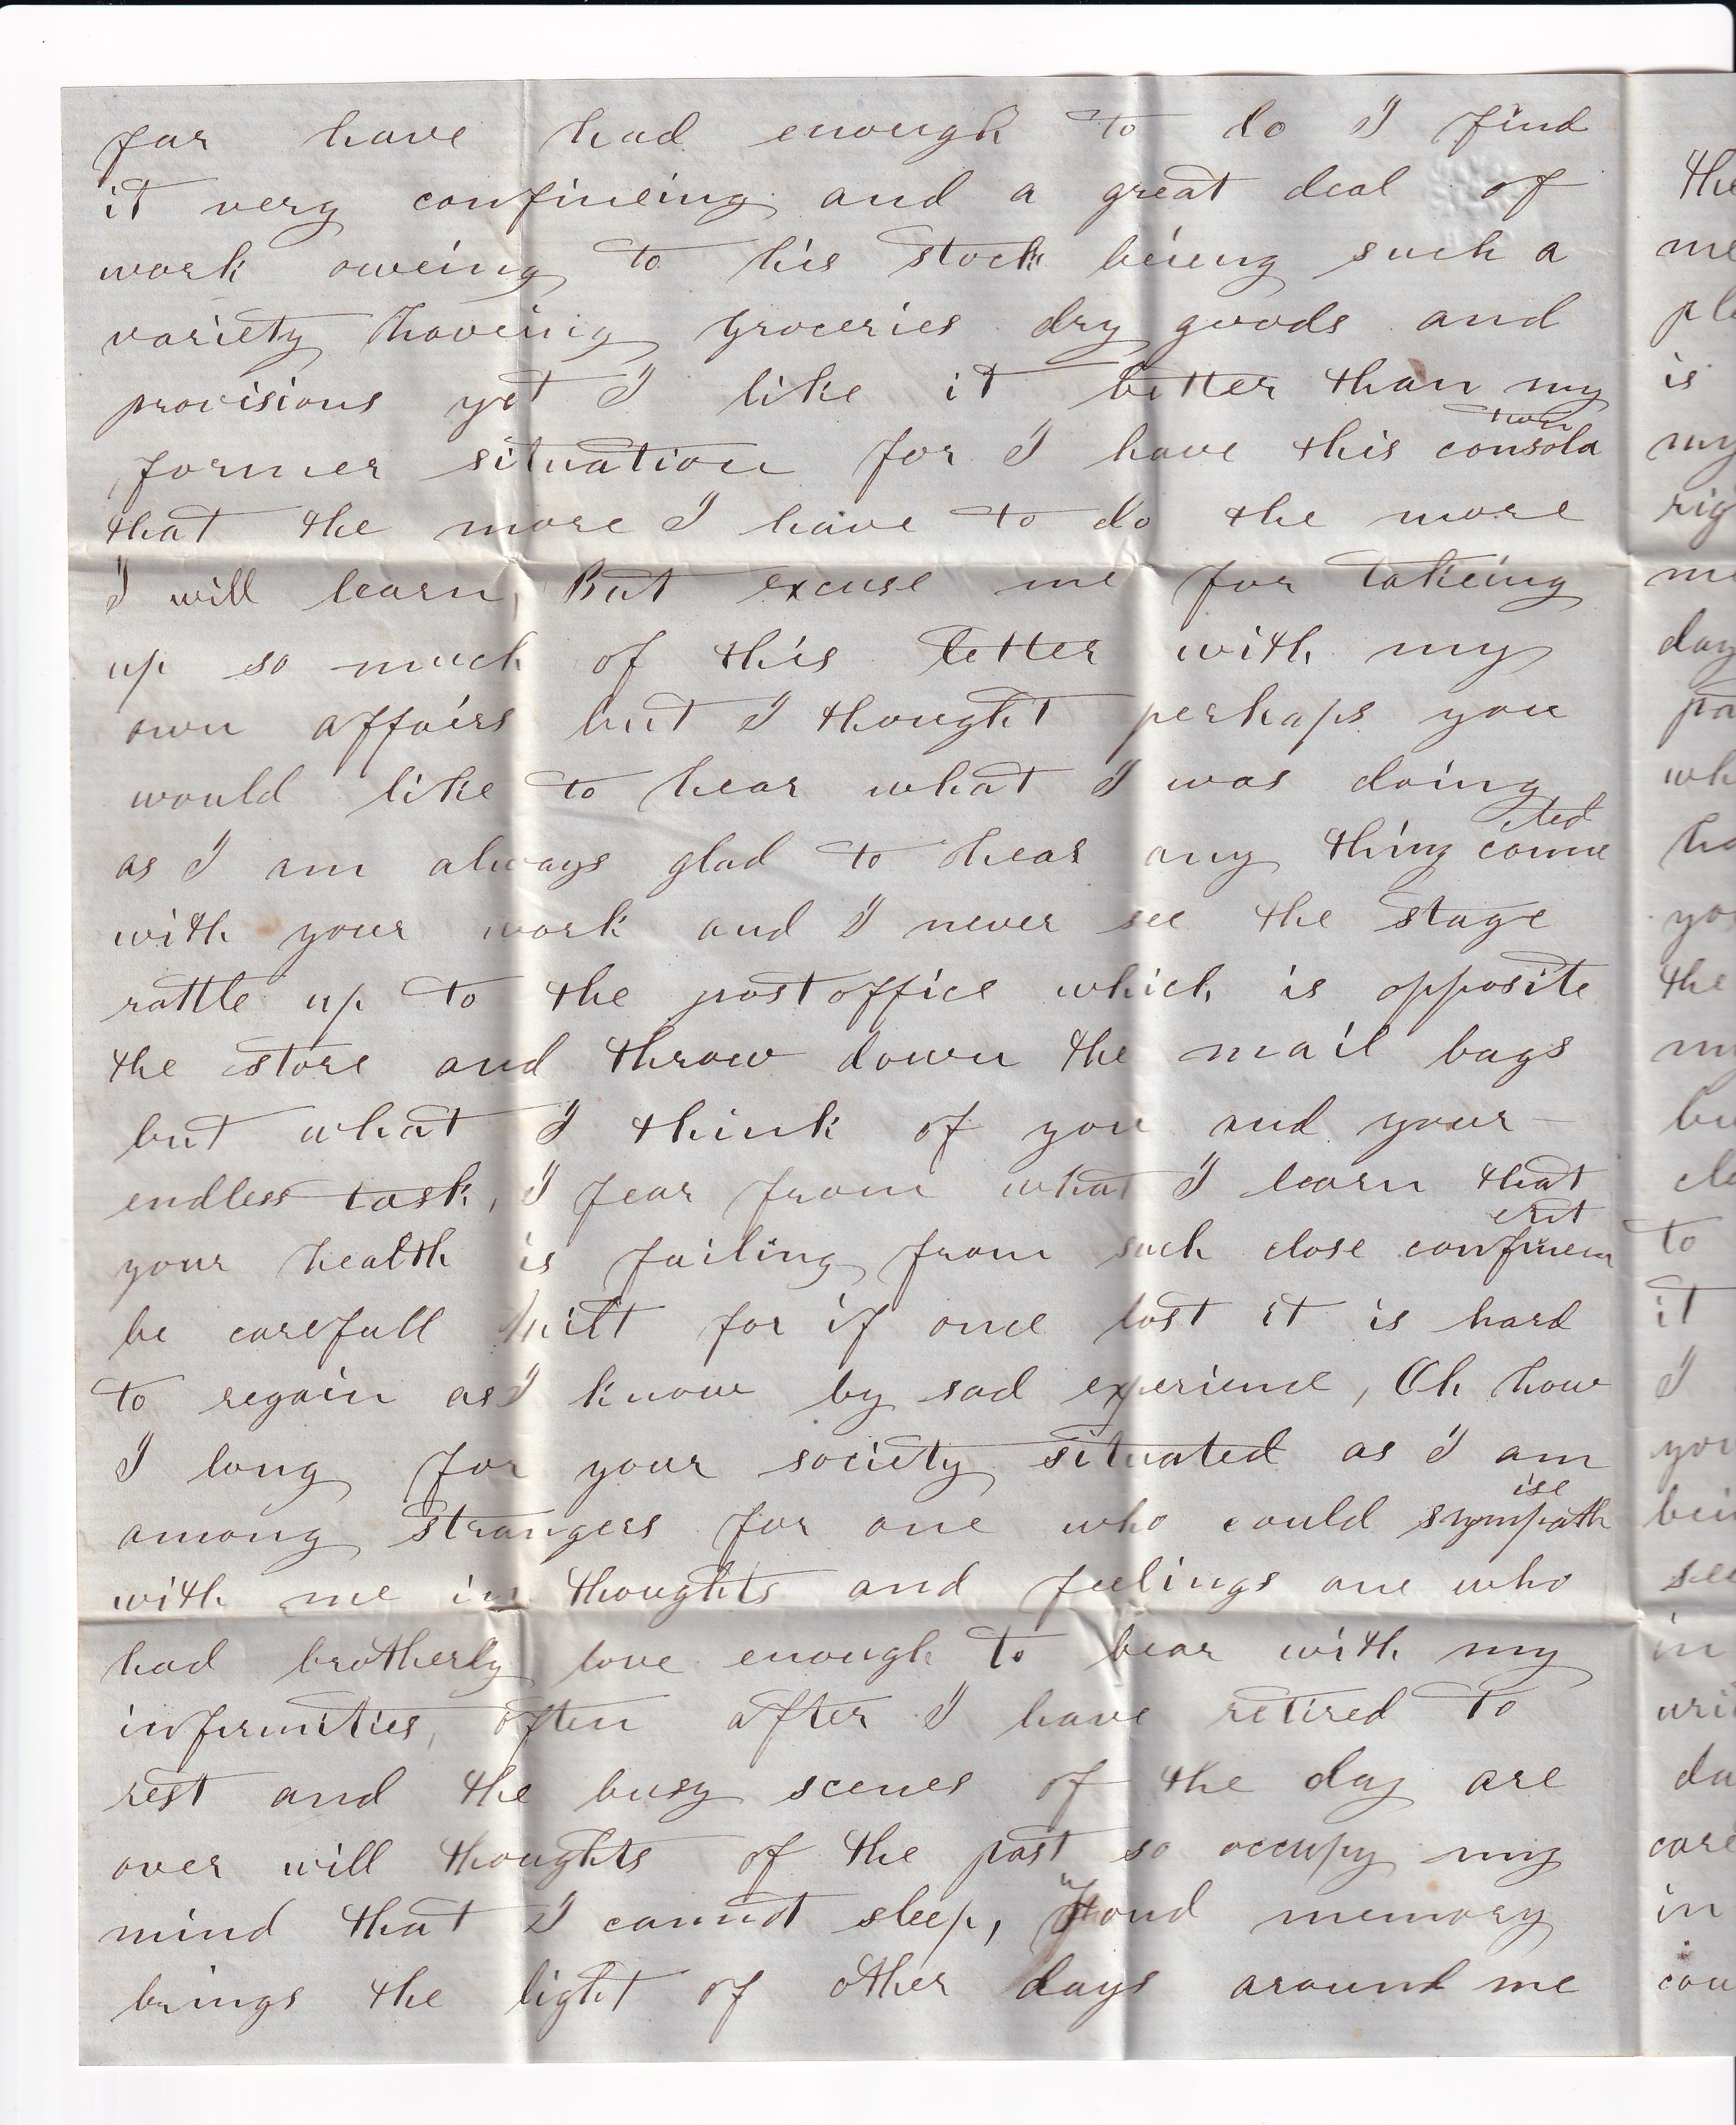 far have had enough to do I find
it very confineing and a great deal of
work oweing to his stock being such a
variety haveing groceries dry goods and
provisions yet I like it better than my
former situation for I have this consolation
that the more I have to do the more
I will learn, But excuse me for takeing
up so much of this letter with my
own affairs but I thought perhaps you
would like to hear what I was doing
as I am always glad to hear any thing connected
with your work and I never see the stage
rattle up to the postoffice which is opposite
the store and throw down the mail bags
but what I think of you and your
endless task, I fear from what I learn that
your health is failing from such close confinement
be carefull for if once lost it is hard
to regain as I know by sad experience, Oh how
I long for your society situated as I am
among strangers for one who could sympathise
with me in thoughts and feelings one who
had brotherly love enough to bear with my
infirmities, often after I have retired to
rest and the busy scenes of the day are
over will thoughts of the past so occupy my
mind that I cannot sleep, "fond memory
brings the light of other days around me
the
me
ple
is
my
rig
me
day
pa
wh
ha
yo
the
my
bu
cle
to
it
I
you
bein
see
in
wri
da
care
in
cou